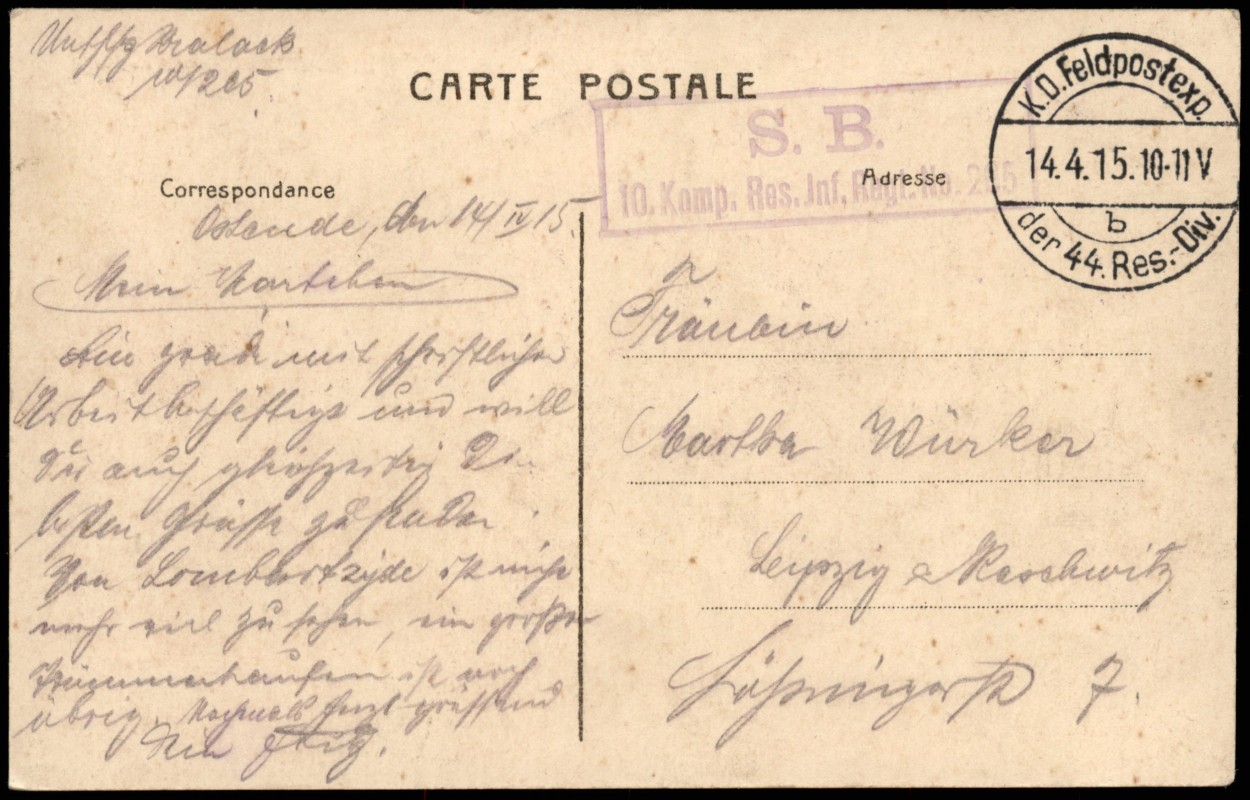 10/205
CARTE POSTALE
S. B.
10. Komp. Res. Inf. Regt. No. 205
K.D. Feldpostexp.
14.4.15.10-11 V
b
der 44. Res.-Div.
Correspondance
Adresse
Ostende, den 14/IV 15.
Mein
Bin grade mit schriftlicher
Arbeit beschäftigt und will
Dir auch gleichzeitig die
besten Grüsse zusenden.
Von Lombartzyde ist nicht
mehr viel zu sehen, ein grosser
Trümmerhaufen ist noch
übrig. Nochmals herzl grüssend
Dein Fritz.
Fräulein
Martha Würker
Leipzig
7.